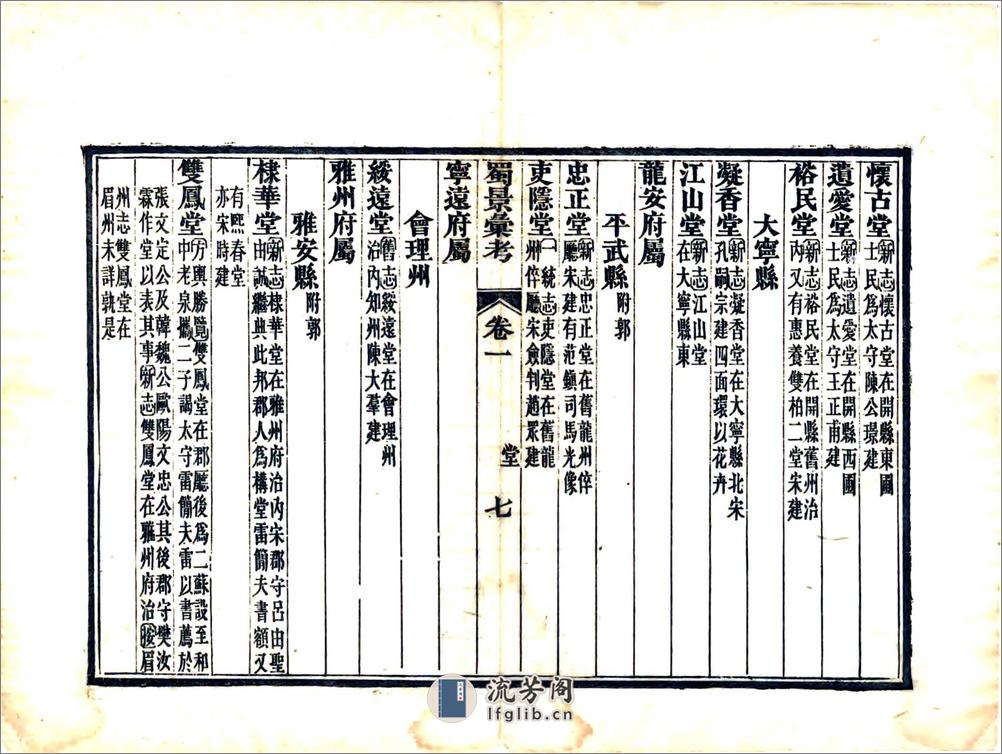 懷古堂 新志懷古堂在開縣東圃
士民爲太守陳公璟建
遺愛堂 新志遺愛堂在開縣西圃
士民爲太守王正甫建
裕民堂 新志裕民堂在開縣舊州治
內又有惠養雙柏二堂宋建
大寧縣
凝香堂 新志凝香堂在大寧縣北宋
孔嗣宗建四面環以花卉
江山堂 新志江山堂
在大寧縣東
龍安府屬
平武縣 附郭
忠正堂 新志忠正堂在舊龍州倅
廳宋建有范鎭司馬光像
吏隱堂 一統志吏隱堂在舊龍
州倅廳宋僉判趙眾建
蜀景彙考 卷一 堂 七
寧遠府屬
會理州
綏遠堂 舊志綏遠堂在會理州
治內知州陳大羣建
雅州府屬
雅安縣 附郭
棣華堂 新志棣華堂在雅州府治內宋郡守呂由聖
由誠繼典此邦郡人爲構堂雷簡夫書額又
有熙春堂
亦宋時建
雙鳳堂 方輿勝覽雙鳳堂在郡廳後爲二蘇設至和
中老泉攜二子謁太守雷簡夫雷以書薦於
張文定公及韓魏公歐陽文忠公其後郡守樊汝
霖作堂以表其事新志雙鳳堂在雅州府治按眉
州志雙鳳堂在
眉州未詳孰是
流芳阁
lfglib.cn